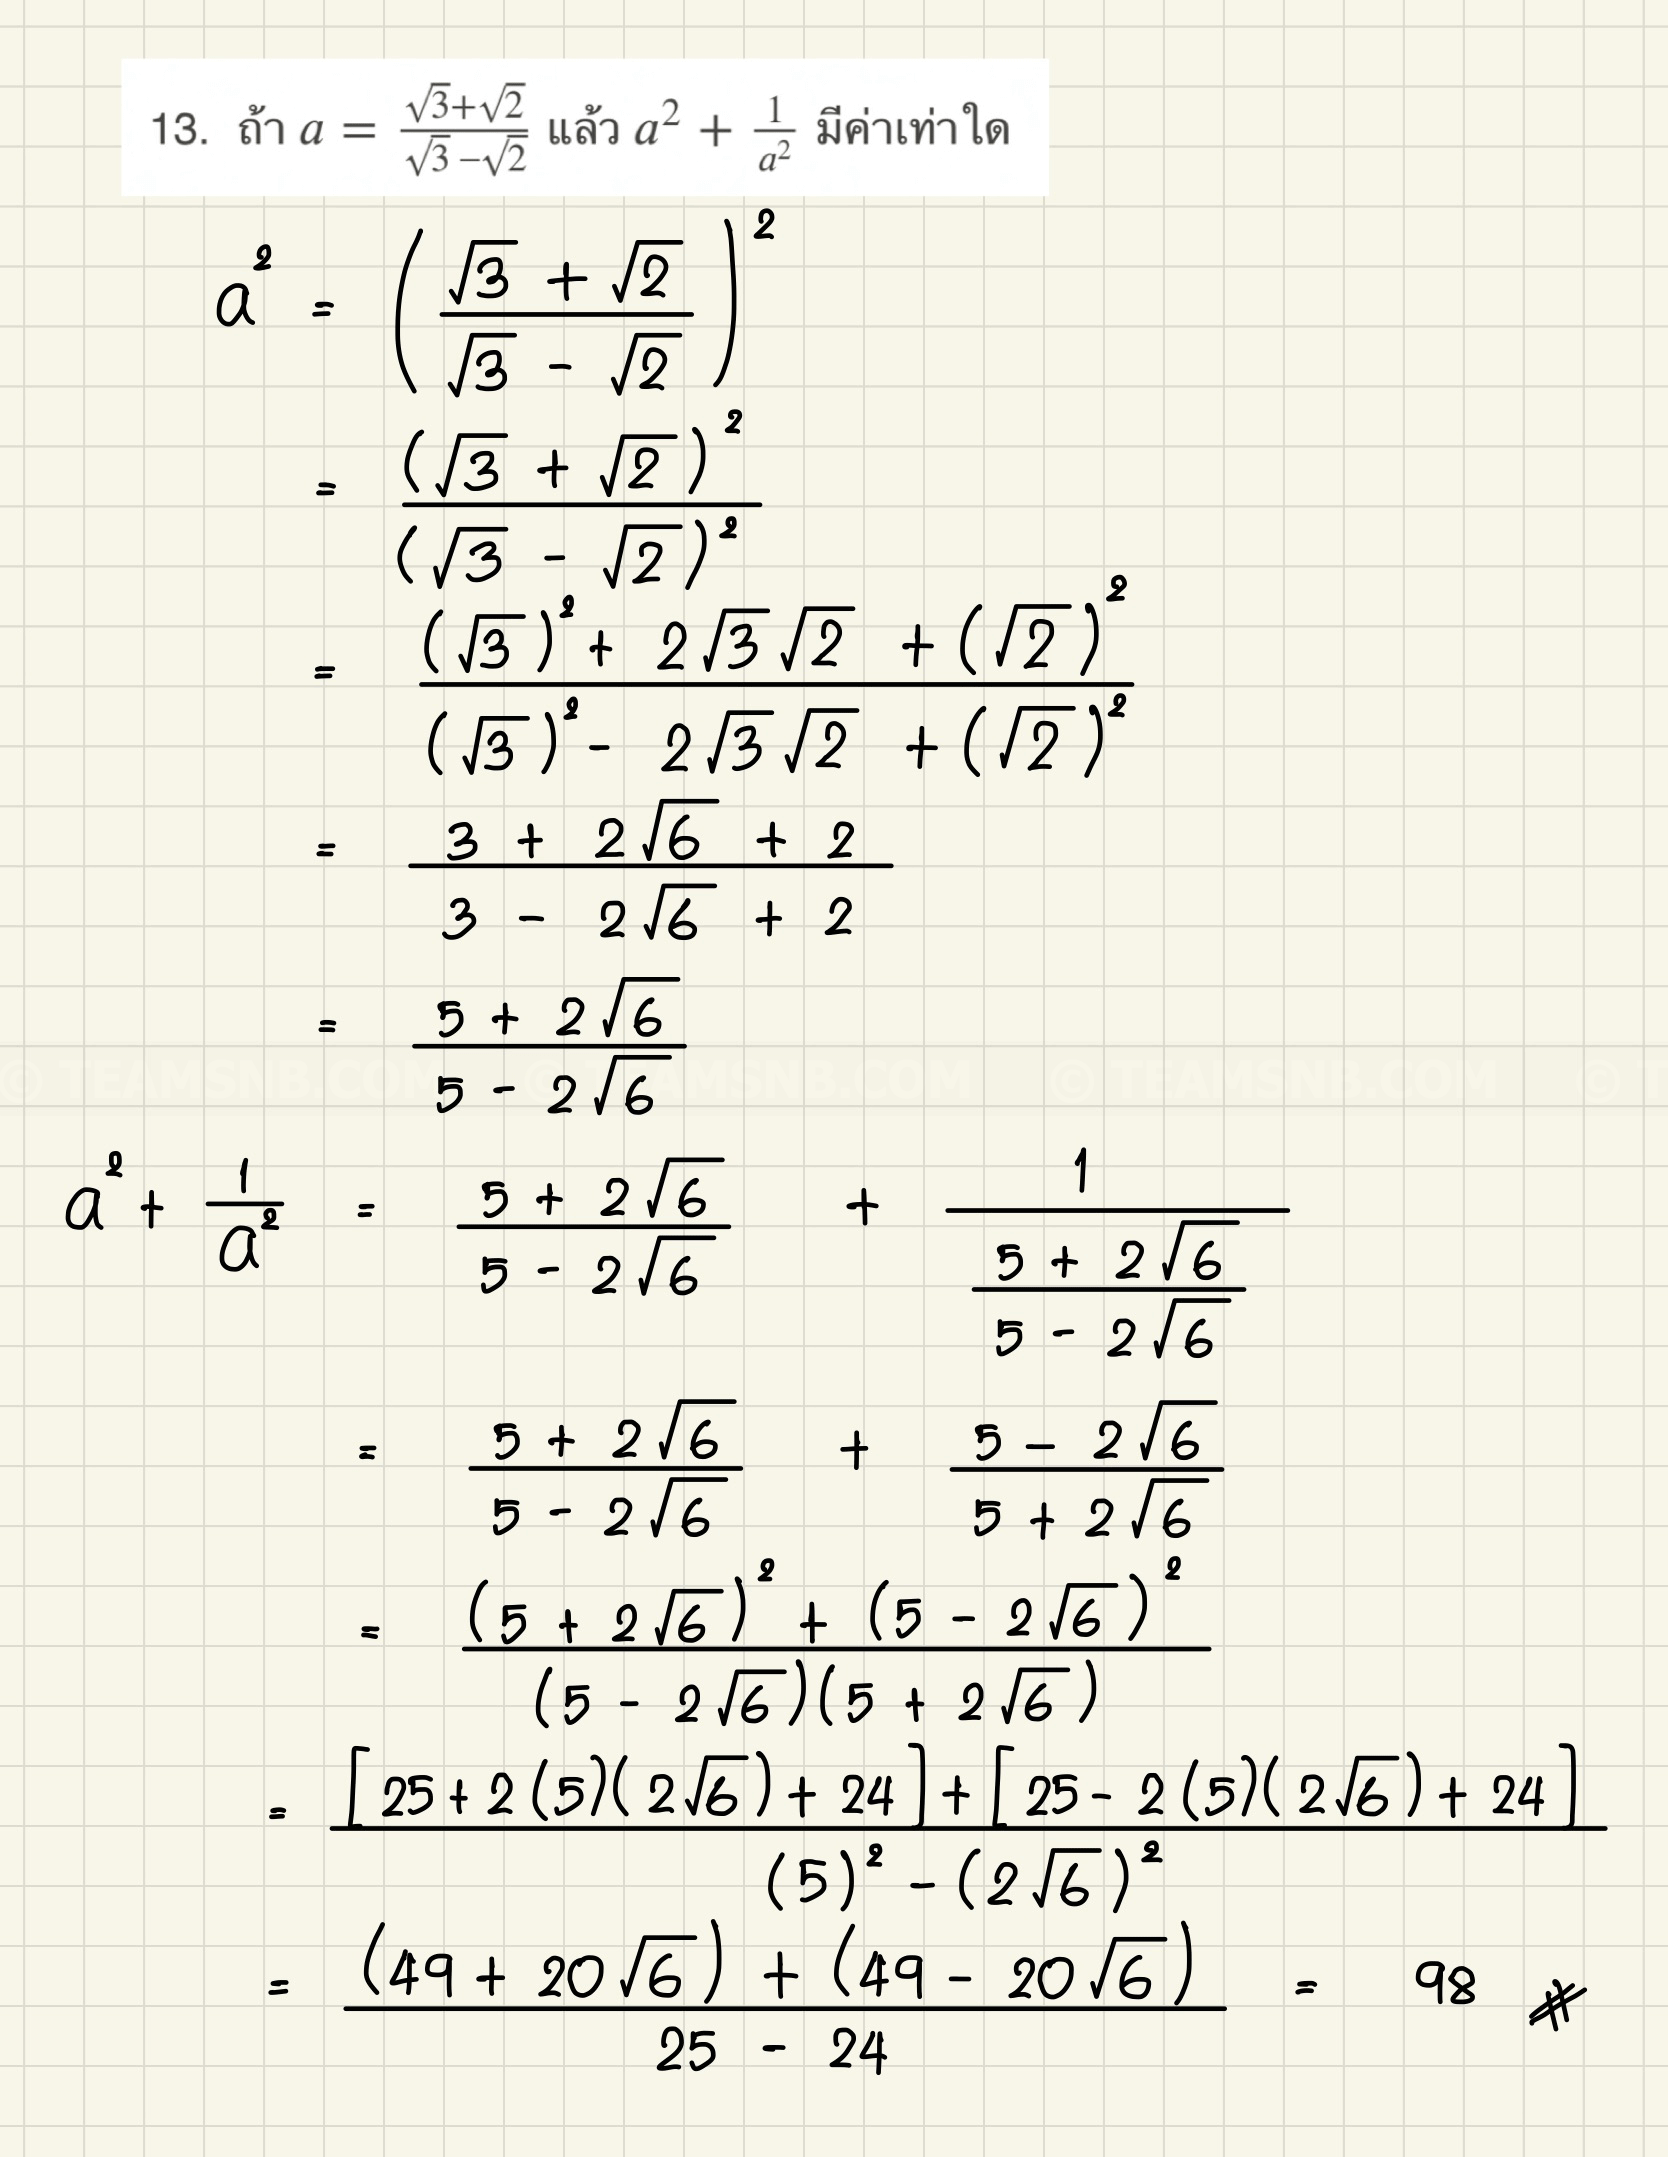 13. ถ้า a = (√3+√2)/(√3−√2) แล้ว a² + 1/a² มีค่าเท่าใด
a² = ((√3 + √2)/(√3 - √2))²
= (√3 + √2)²/(√3 - √2)²
= ((√3)² + 2√3√2 + (√2)²)/((√3)² - 2√3√2 + (√2)²)
= (3 + 2√6 + 2)/(3 - 2√6 + 2)
= (5 + 2√6)/(5 - 2√6)
© TEAMSNB.COM © TEAMSNB.COM © TEAMSNB.COM © T
a² + 1/a² = (5 + 2√6)/(5 - 2√6) + 1/((5 + 2√6)/(5 - 2√6))
= (5 + 2√6)/(5 - 2√6) + (5 - 2√6)/(5 + 2√6)
= ((5 + 2√6)² + (5 - 2√6)²)/((5 - 2√6)(5 + 2√6))
= ([25 + 2(5)(2√6) + 24] + [25 - 2(5)(2√6) + 24])/((5)² - (2√6)²)
= ((49 + 20√6) + (49 - 20√6))/(25 - 24) = 98 #